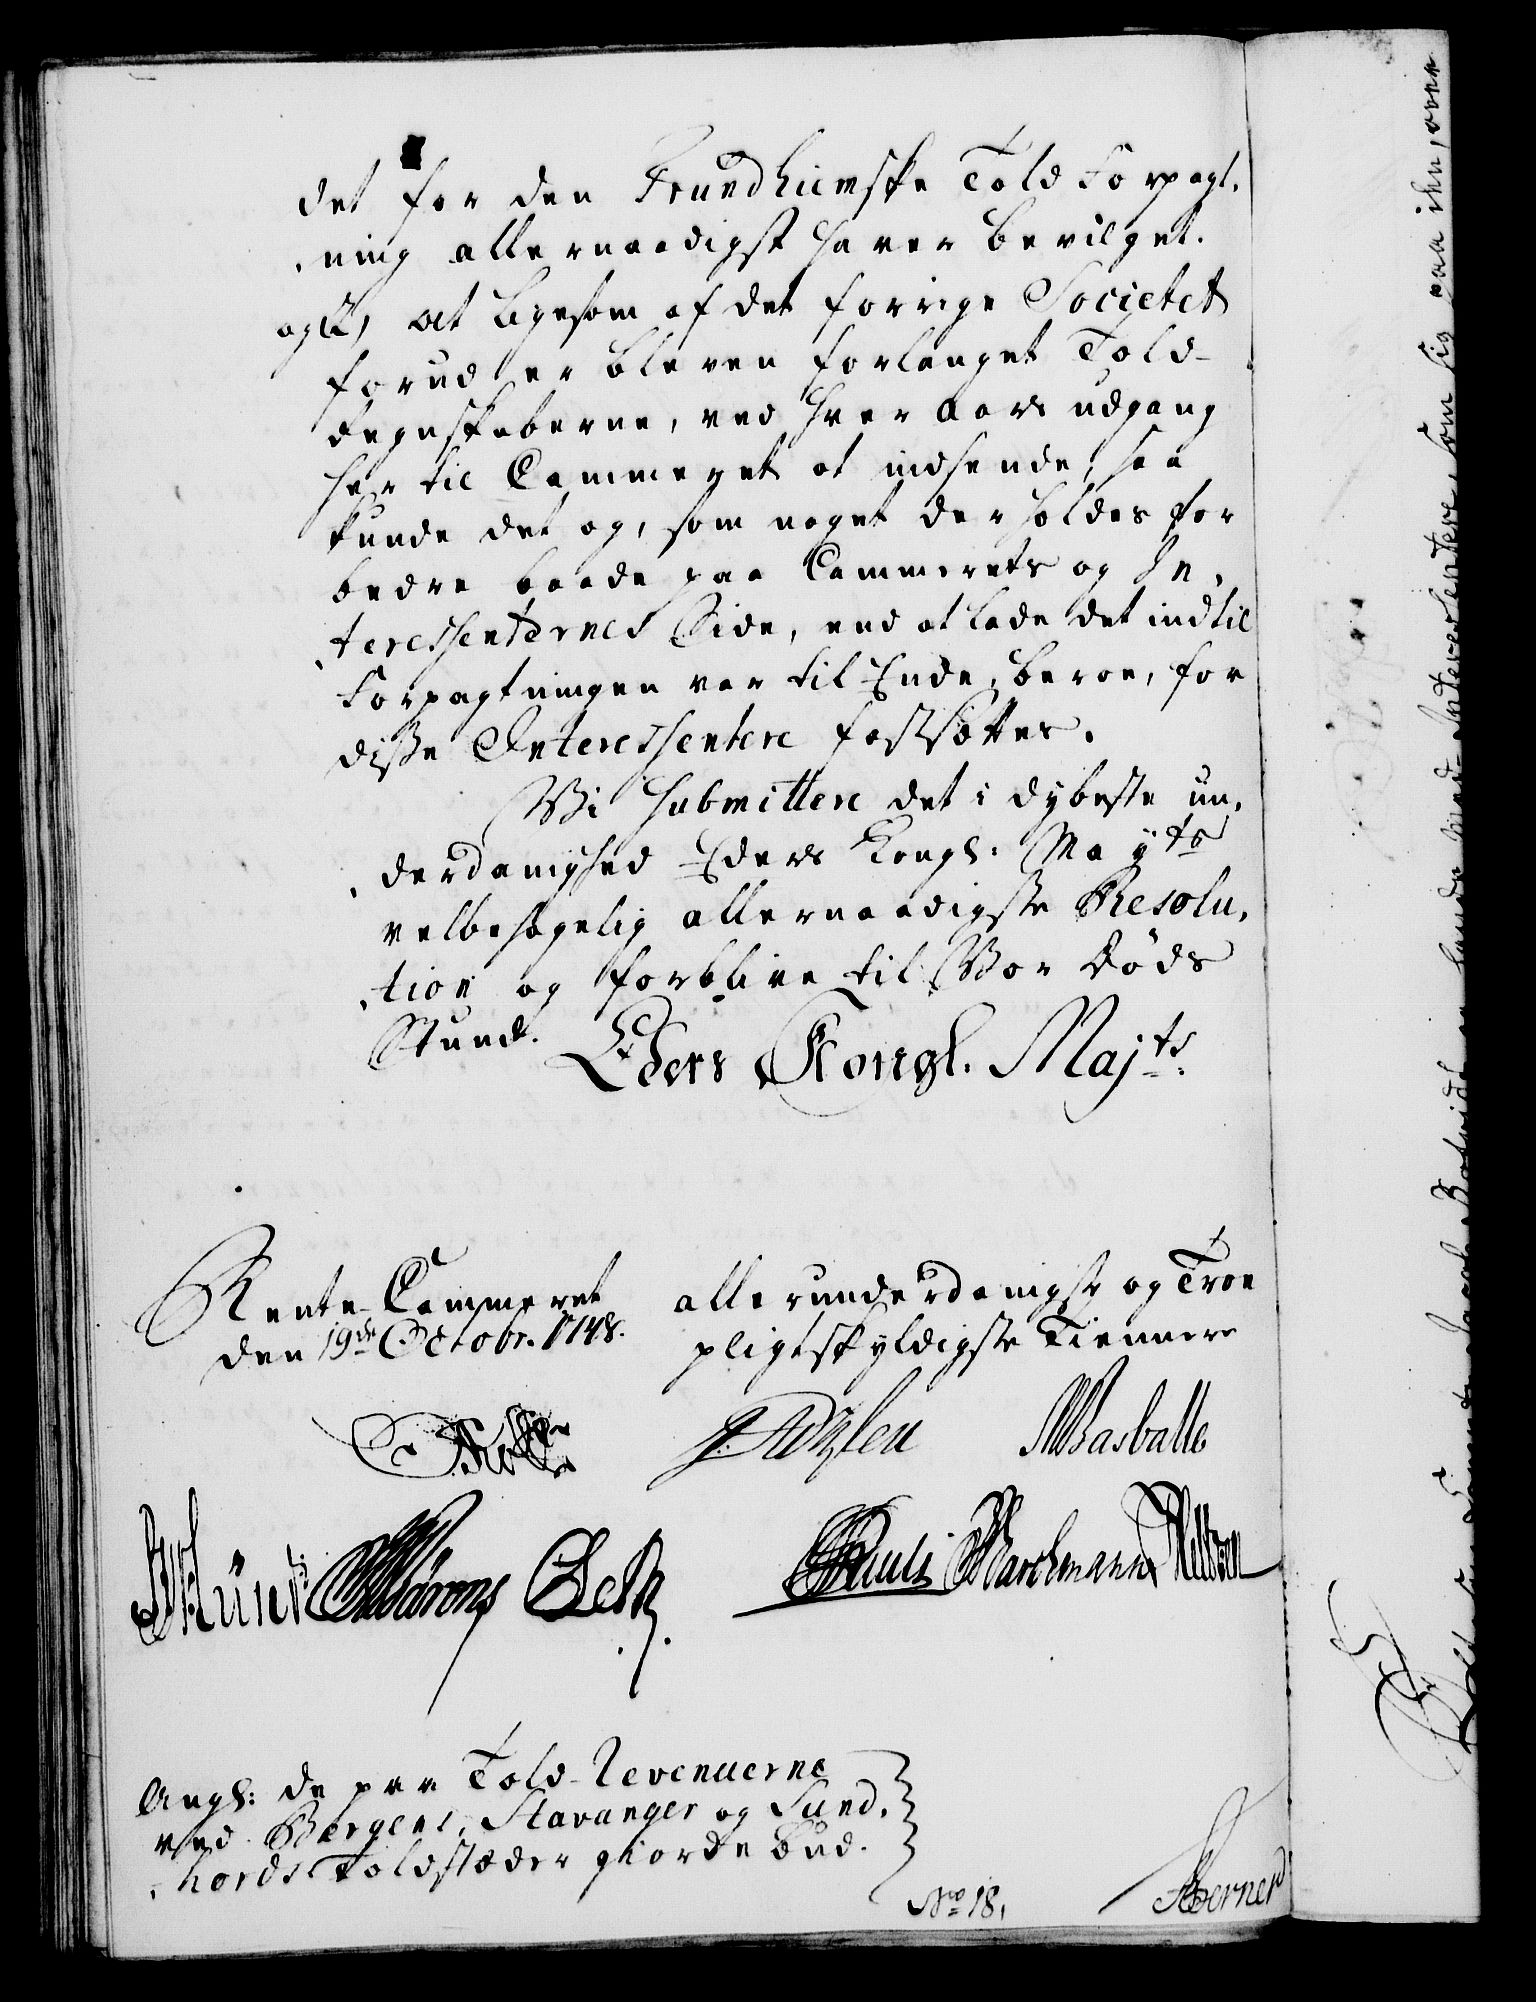 det for den Trundhiemske Told Forpagt,
,ning allernaadigst haver bevilget.
og 2, at ligesom af det forrige Societet
forud er bleven forlanget Told-
Regnskaberne, ved hver Aars udgang
her til Cammeret at indsende, saa
kunde det og, som noget der holdes for
bedre baade paa Cammerets og In,
,teressenternes Side, end at lade det indtil
Forpagtningen var til Ende, beroe, for
disse Interessentere fastsættes.
Wi submittere det i dybeste un,
,derdanighed Eders Kongl: Mayts
velbehagelig allernaadigste Resolu,
,tion og forblive til Vor Døds
Stund.
Eders Kongl. Majts:
Rente-Cammeret
den 19de Octobr. 1748.
allerunderdanigste og Troe
pligtskyldigste Tienere
Holst Basballe
Pauli Marckmann
Angl: de paa Told-Revenuerne
ved Bergens, Stavanger og Sund,
,hords Toldstæder giorde bud.
No 18,
Berner